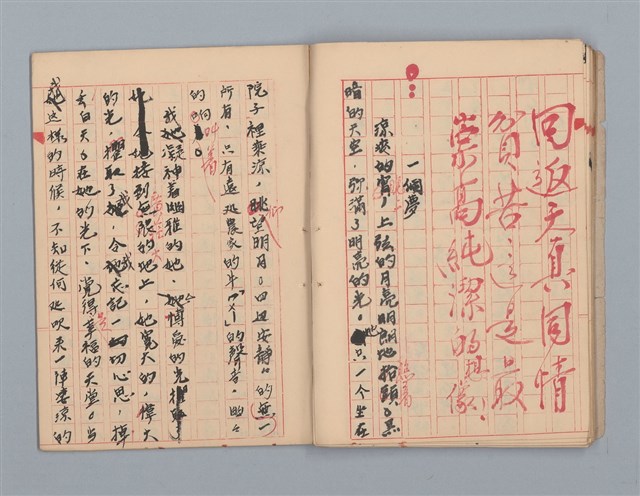 回返天真同情
貧苦這是最
崇高純潔的
一個夢
涼爽的宵,上弦的月亮明朗地抬頭。黑
暗的天空,弥滿了明亮的光。只一个坐在
院子裡乘涼,眺望明月。四週安靜的無一
所有,只有遠處農家的牛「メー」的聲音,
的叫着
我她凝神着幽雅的她,她博愛的光
她接到無限的地上,她寬大的,偉大
的光,擢取了我,令我忘記一切切心思,掉
去白天。在她的光下,覺得幸福的天堂。当
我這樣的時候,不知從何處吹來一陣凄涼的